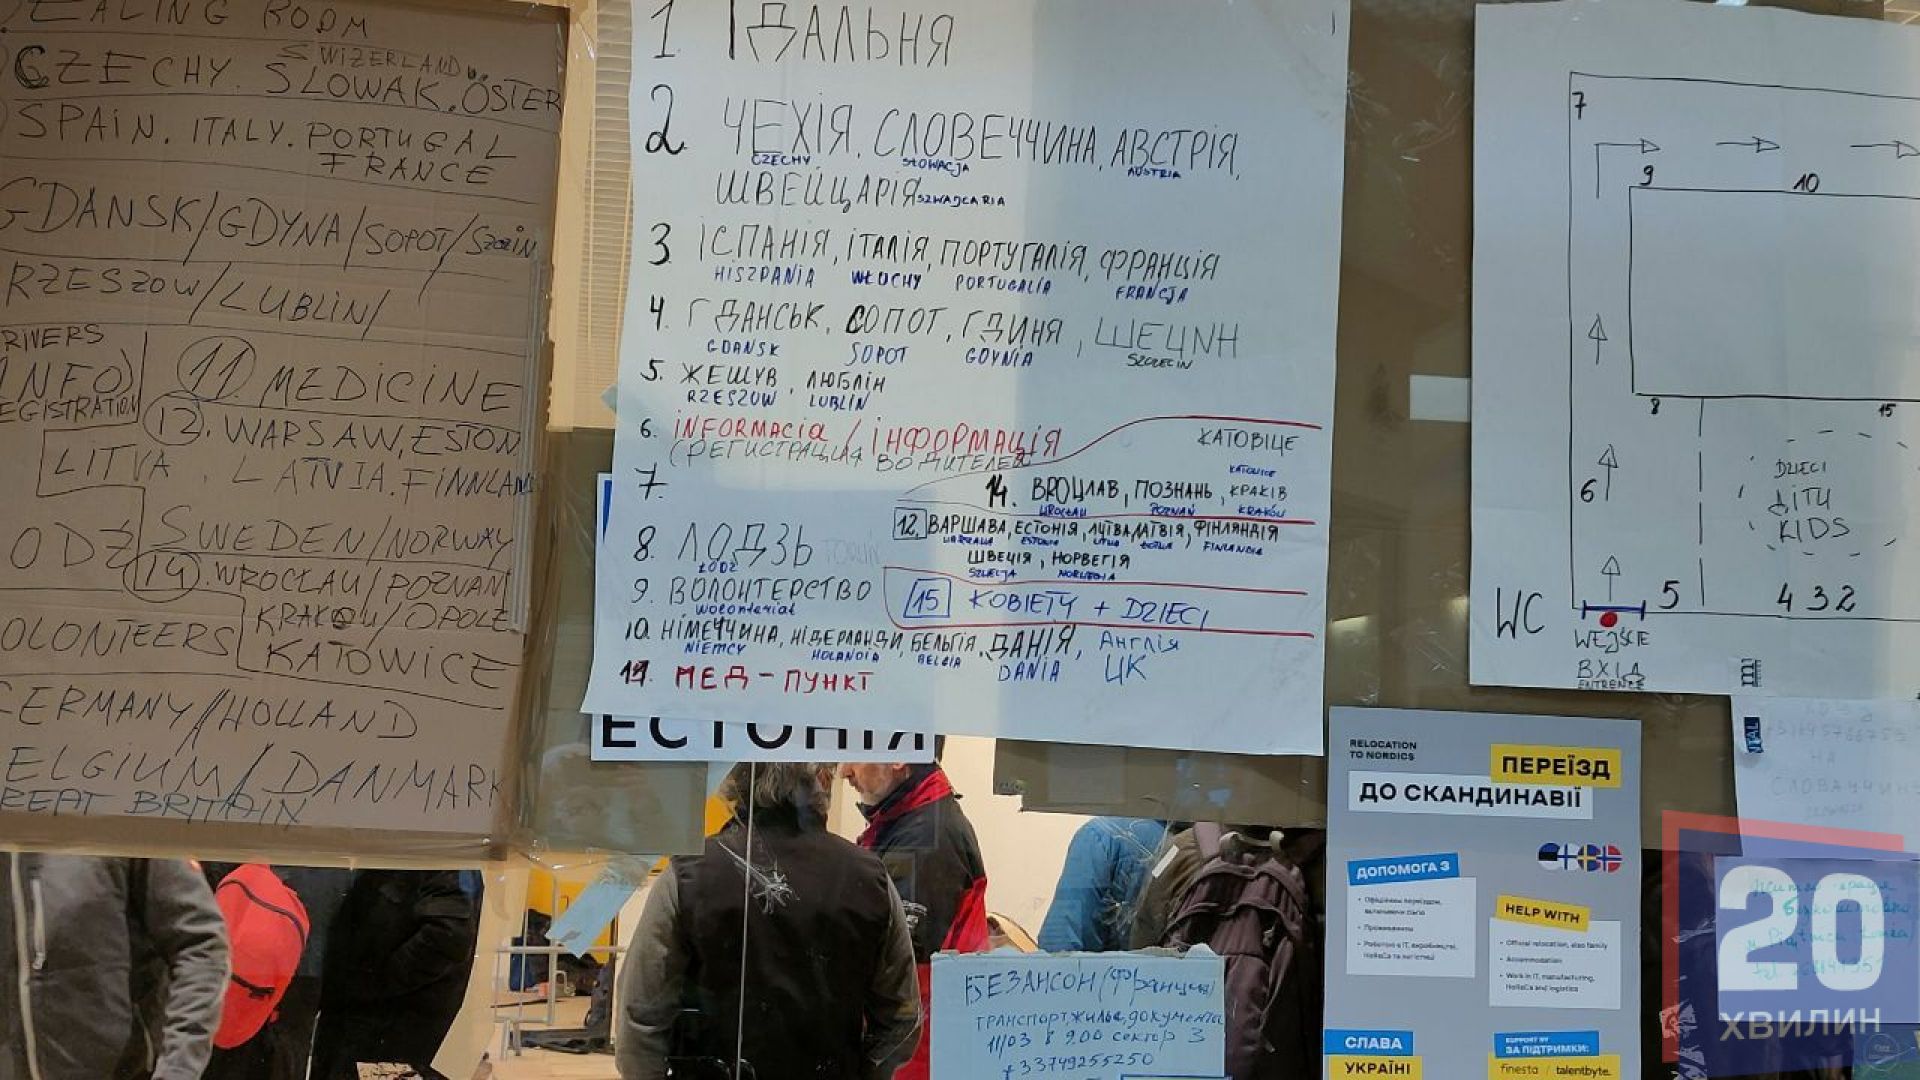 EALING ROOM
SWIZERLAND
CZECHY. SLOWAK. ÖSTER
SPAIN. ITALY. PORTUGAL
FRANCE
GDANSK/GDYNA/SOPOT/
RZESZOW/LUBLIN/
RIVERS
INFO
EGISTRATION
11 MEDICINE
12. WARSAW, ESTON
LITVA, LATVIA. FINNLAN
ODŹ
SWEDEN/NORWAY
14. WROCŁAW/POZNAN
KRAKOW/OPOLE
KATOWICE
OLONTEERS
GERMANY//HOLLAND
ELGIUM/DANMARK
REAT BRITAIN
1. ЇДАЛЬНЯ
2 ЧЕХІЯ, СЛОВЕЧЧИНА, АВСТРІЯ,
CZECHY SŁOWACJA AUSTRIA
ШВЕЙЦАРІЯ SZWAJCARIA
3 ІСПАНІЯ, ІТАЛІЯ, ПОРТУГАЛІЯ, ФРАНЦІЯ
HISZPANIA WŁOCHY PORTUGALIA FRANCJA
4. ГДАНСЬК, СОПОТ, ГДИНЯ, ШЕЦИН
GDANSK SOPOT GDYNIA SZCZECIN
5. ЖЕШУВ, ЛЮБЛІН
RZESZOW LUBLIN
6. INFORMACIA / ІНФОРМАЦІЯ
(РЕГИСТРАЦИЯ ВОДИТЕЛЕЙ
7.
КАТОВІЦЕ
KATOWICE
14. ВРОЦЛАВ, ПОЗНАНЬ, КРАКІВ
WROCŁAW POZNAŃ KRAKÓW
12. ВАРШАВА, ЕСТОНІЯ, ЛИТВА, ЛАТВІЯ, ФІНЛЯНДІЯ
WARSZAWA ESTONIA LITWA ŁOTWA FINLANDIA
ШВЕЦІЯ, НОРВЕГІЯ
SZWECJA NORWEGIA
8. ЛОДЗЬ TORUŃ
ŁÓDŹ
9. ВОЛОНТЕРСТВО
WOLONTERIAT
15 KOBIETY + DZIECI
10. НІМЕЧЧИНА, НІДЕРЛАНДИ, БЕЛЬГІЯ, ДАНІЯ, Англія
NIEMCY HOLANDIA BELGIA DANIA ЦК
11. МЕД-ПУНКТ
ЕСТОНІЯ
7
9 10
8 15
DZIECI
ДІТИ
KIDS
6
5 4 3 2
WC
WEJŚCIE
ВХІД
ENTRENCE
RELOCATION
TO NORDICS
ПЕРЕЇЗД
ДО СКАНДИНАВІЇ
ДОПОМОГА З
• Офіційним переїздом,
включаючи сім'ю
• Проживанням
• Роботою в IT, виробництві,
HoReCa та логістиці
HELP WITH
• Official relocation, also family
• Accommodation
• Work in IT, manufacturing,
HoReCa and logistics
СЛАВА
УКРАЇНІ
SUPPORT BY
ЗА ПІДТРИМКИ:
finesta / talentbyte.
БЕЗАНСОН (Франция)
ТРАНСПОРТ, жилье, документы
11/03 в 9.00 сектор 3
+33749255250
НА
СЛОВАЧЧИНУ
20
ХВИЛИН